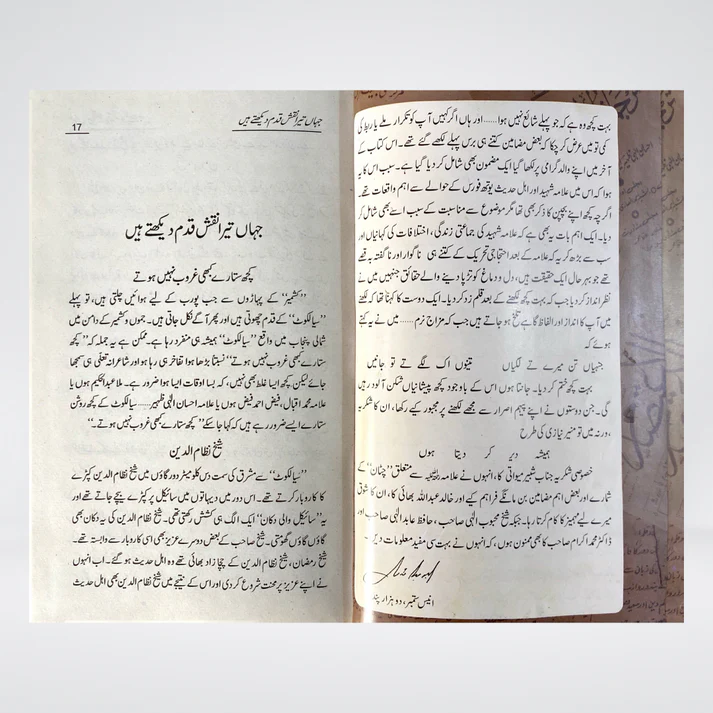 بہت کچھ وہ ہے کہ جو پہلے شائع نہیں ہوا......اور ہاں اگر کہیں آپ کو تکرار ملے یا ربط کی
کمی تو میں عرض کر چکا کہ بعض مضامین کتنے ہی برس پہلے لکھے گئے تھے۔ اس کتاب کے
آخر میں اپنے والد گرامی پر لکھا گیا ایک مضمون بھی شامل کر دیا گیا ہے۔ سبب اس کا یہ
ہوا کہ اس میں علامہ شہید اور اہل حدیث یوتھ فورس کے حوالے سے اہم واقعات تھے۔
اگرچہ کچھ اپنے بچپن کا ذکر بھی تھا مگر موضوع سے مناسبت کے سبب اسے بھی شامل کر
دیا۔ ایک اہم بات یہ بھی ہے کہ علامہ شہید کی جماعتی زندگی، اختلافات کی کہانیاں اور
سب سے بڑھ کر یہ کہ علامہ کے بعد احتجاجی تحریک کے کتنے ہی ناگوار اور ناگفتہ بہ قصے
تھے جو بہر حال ایک حقیقت ہیں، دل و دماغ کو تڑپا دینے والے حقائق جنہیں میں نے
نظر انداز کر دیا جب کہ بہت کچھ لکھنے کے بعد قلم زد کر دیا۔ ایک دوست کا کہنا تھا کہ لکھنے
میں آپ کا انداز اور الفاظ گاہے تلخ ہو جاتے ہیں جب کہ مزاج نرم......میں نے یہ کہتے
ہوئے کہ
جنہاں تن میرے تے لگیاں تینوں اک لگے تے توں جانیں
بہت کچھ ختم کر دیا۔ جانتا ہوں اس کے باوجود کچھ پیشانیاں شکن آلود رہیں
گی۔ جن دوستوں نے اپنے پیہم اصرار سے مجھے لکھنے پر مجبور کیے رکھا، ان کا شکریہ
،ورنہ میں تو منیر نیازی کی طرح
ہمیشہ دیر کر دیتا ہوں
خصوصی شکریہ جناب شبیر میواتی کا، انہوں نے علامہ رحمۃ اللہ علیہ سے متعلق ”چٹان“ کے
شمارے اور بعض اہم مضامین بن مانگے فراہم کیے اور خالد عبداللہ بھائی کا، ان کا شوق
میرے لیے مہمیز کا کام کرتا رہا۔ جبکہ شیخ محبوب الٰہی صاحب، حافظ عابد الٰہی صاحب اور
ڈاکٹر محمد اکرام صاحب کا بھی ممنون ہوں، کہ انہوں نے بہت سی مفید معلومات دیں۔
انیس ستمبر، دو ہزار پند
جہاں تیرا نقش قدم دیکھتے ہیں
17
جہاں تیرا نقش قدم دیکھتے ہیں
کچھ ستارے کبھی غروب نہیں ہوتے
”کشمیر“ کے پہاڑوں سے جب پورب کے لیے ہوائیں چلتی ہیں، تو پہلے
”سیالکوٹ“ کے قدم چھوتی ہیں اور پھر آگے نکل جاتی ہیں۔ جموں و کشمیر کے دامن میں
شمالی پنجاب میں واقع ”سیالکوٹ“ ہمیشہ ہی منفرد رہا ہے۔ ممکن ہے یہ جملہ کہ ”کچھ
ستارے کبھی غروب نہیں ہوتے“ نسبتاً بڑھا ہوا تفاخر ہی رہا ہو اور شاعرانہ تعلی ہی سمجھا
جائے لیکن کچھ ایسا غلط بھی نہیں، کہ بسا اوقات ایسا ہوا ضرور ہے۔ ملا عبدالحکیم ہوں یا
علامہ محمد اقبال، فیض احمد فیض ہوں یا علامہ احسان الٰہی ظہیر......سیالکوٹ کے کچھ روشن
ستارے ایسے ضرور رہے ہیں کہ کہا جا سکے ”کچھ ستارے کبھی غروب نہیں ہوتے۔“
شیخ نظام الدین
”سیالکوٹ“ سے مشرق کی سمت دس کلومیٹر دور گاؤں میں شیخ نظام الدین کپڑے
کا کاروبار کرتے تھے۔ اس دور میں دیہاتوں میں سائیکل پر کپڑے بیچے جاتے تھے اور
یہ ”سائیکل والی دکان“ ایک الگ ہی کشش رکھتی تھی۔ شیخ نظام الدین کی یہ دکان بھی
گاؤں گاؤں گھومتی۔ شیخ صاحب کے بعض دوسرے عزیز بھی اسی کاروبار سے وابستہ تھے۔
شیخ رمضان، شیخ نظام الدین کے چچا زاد بھائی تھے وہ اہل حدیث ہو گئے۔ اب انہوں
نے اپنے عزیز پر محنت شروع کر دی اور اس کے نتیجے میں شیخ نظام الدین بھی اہل حدیث